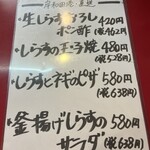 岸和田港 直送
生しらすおろしポン酢 420円
(税462円)
しらすの玉子焼 480円
(税528円)
しらすとネギのピザ 580円
(税638円)
釜揚げしらすの 580円
サラダ (税638円)